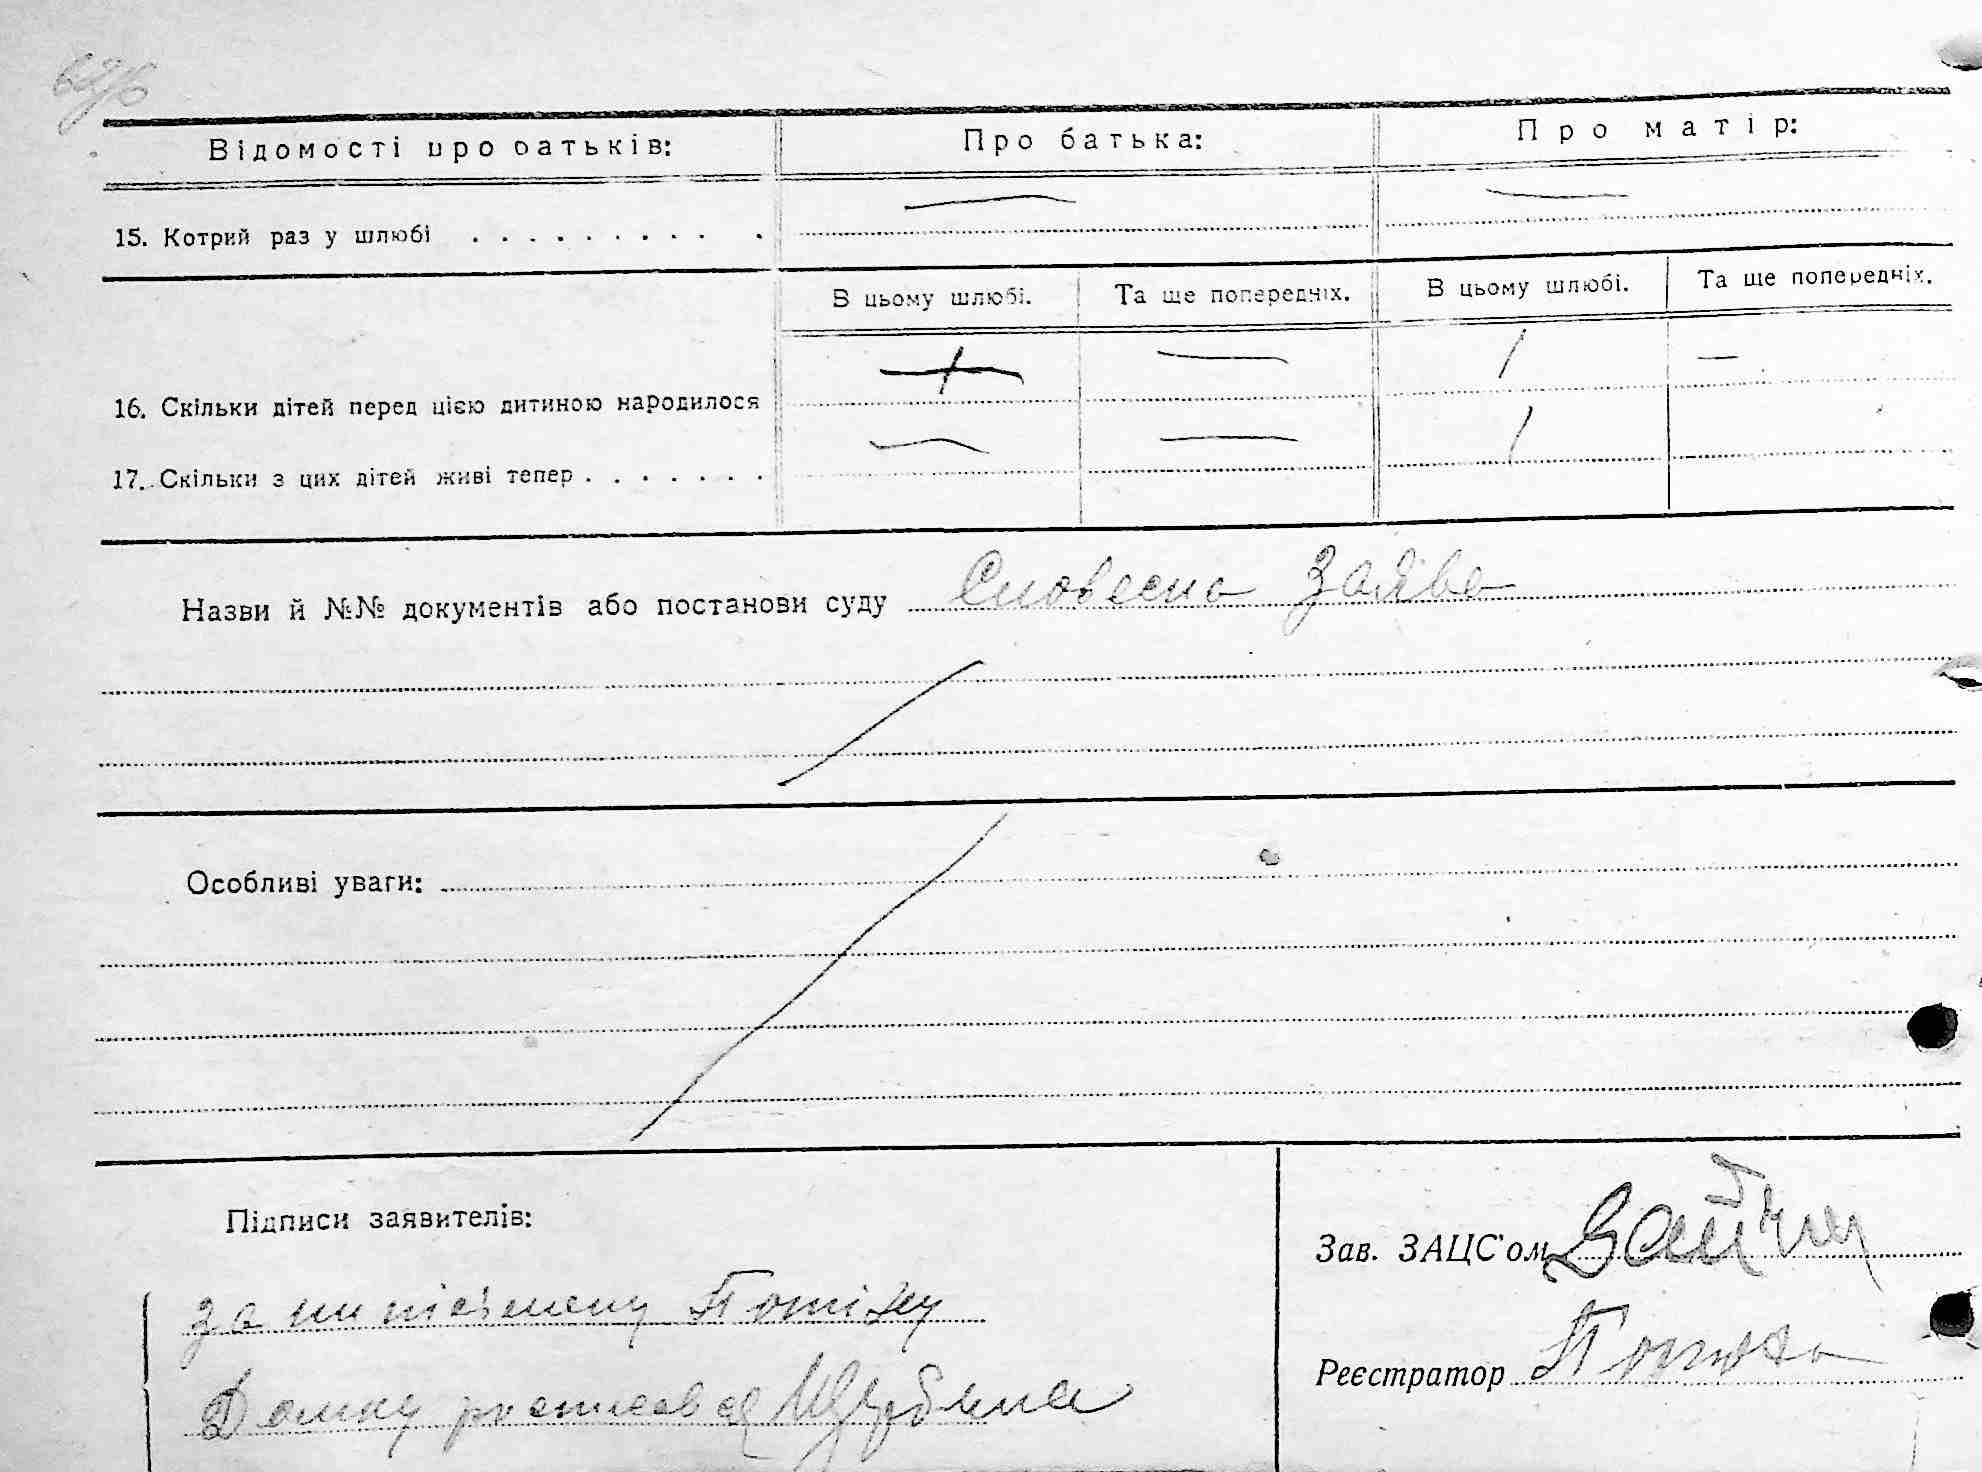 Відомості про батьків: Про батька: Про матір:
15. Котрий раз у шлюбі . . . . . . . . . . — —
В цьому шлюбі. Та ще попередніх. В цьому шлюбі. Та ще попередніх.
16. Скільки дітей перед цією дитиною народилося — 1 —
17. Скільки з цих дітей живі тепер . . . . . . . — — 1
Назви й №№ документів або постанови суду Словесна Заява
Особливі уваги:
Підписи заявителів:
Зав. ЗАЦС'ом
за
Реєстратор
Домку Щербина